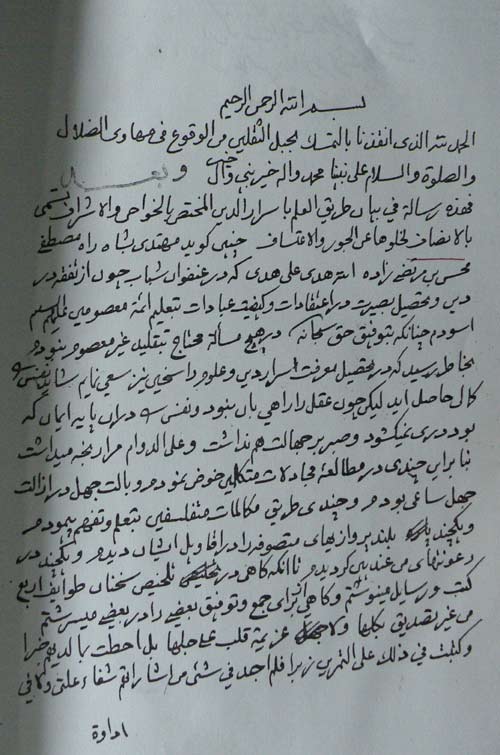 بسم الله الرحمن الرحیم
الحمد لله الذی انقذنا بالتمسک بحبل الثقلین من الوقوع فی مهاوی الضلال
والصلوة والسلام علی نبینا محمد واله خیر نبی وآل وبعد
فهذه رسالة فی بیان طریق العلم باسرار الدین المختص بالخواص والاشراف یسمی
بالانصاف لخلوها عن الجور والاعتساف چنین کوید مهتدی بشاه راه مصطفی
محسن بن مرتضی زاده الله هدی علی هدی که در عنفوان شباب چون از تفقه در
دین و تحصیل بصیرت در اعتقادات و کیفیت عبادات بتعلیم ائمه معصومین علیهم السلم
اسودم چنانکه بتوفیق حق سبحانه در هیچ مسألة محتاج بتقلید غیر معصوم نبودم
بخاطر رسید که در تحصیل معرفت اسرار دین و علوم راسخین نیز سعی نمایم شاید نفس
کمال حاصل اید لیکن چون عقل را راهی بان نبود و نفس در ان پایه ایمان که
بود دری نمیکشود و صبر بر جهالت هم نداشت و علی الدوام مرا رنجه میداشت
بنا براین چندی در مطالعه مجادلات متکلمین خوض نمودم و بالت جهل در ازالت
جهل ساعی بودم و چندی طریق مکالمات متفلسفین بتعلم و تفهم پیمودم
و یکچند بلند پروازیهای متصوفه را در اقاویل ایشان دیدم و یکچند در
رعونتهای من عندیین کردیدم تا انکه کاهی در تلخیص سخنان طوایف اربع
کتب و رسایل مینوشتم و کاهی از برای جمع و توفیق بعضی را در بعضی میسرشتم
من غیر تصدیق بکلها ولا عزیمة قلب علی جلها بل احطت بما لدیهم خبرا
وکتبت فی ذلک علی التمرین زبرا فلم اجد فی شئ من اشاراتهم شفاء علتی ولا فی
اداوة